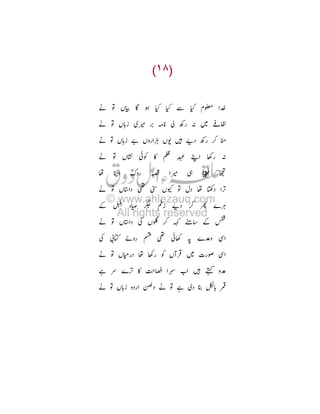 (۱۸)
خدا معلوم کیا سے کیا کیا ہو گا بیاں تو نے
لفافے میں نہ رکھ لی نامہ بر میری زباں تو نے
مٹا کر رکھ دیے ہیں یوں ہزاروں بے زباں تو نے
نہ رکھا اپنے عہدِ ظلم کا کوئی نشاں تو نے
تجھے ہی میرا قصہ روک دینا تھا
ترا دکھتا تھا دل تو کیوں سنی تھی داستاں تو نے
ہرے پھر کر دیے زخمِ جگر صیاد بلبل کے
قفس کے سامنے کہہ کر گلوں کی داستاں تو نے
اسی وعدے پہ کھائی تھی قسم روئے کتابی کی
اسی صورت میں قرآں کو رکھا تھا درمیاں تو نے
عدو کہتے ہیں اب سہرا فصاحت کا ترے سر ہے
قمر بالکل بنا دی ہے تو نے دلھن اردو زباں تو نے
© www.ahlezauq.com
All rights reserved